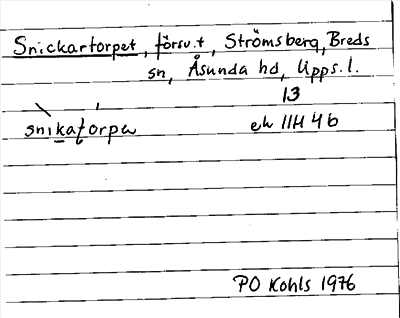 Snickartorpet, försv.t, Strömsberg, Breds
sn, Åsunda hd, Upps.l.
13
snikatorpa
ek 11H 4b
PO Kohls 1976